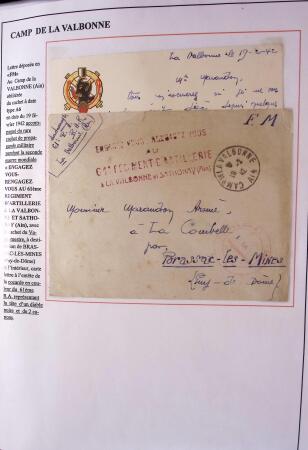 CAMP DE LA VALBONNE
Lettre déposée en
«FM»
Au Camp de la
VALBONNE (Ain)
oblitérée
du cachet à date
type A6
en date du 19 fé-
vrier 1942
pagné du rare
cachet de propa-
gande militaire
pendant la seconde
guerre mondiale
« ENGAGEZ
VOUS-
RENGAGEZ
VOUS AU 61ème
REGIMENT
D'ARTILLERIE
A LA VALBON-
NE ET SATHO-
NAY (Ain), avec
cachet du
à desti-
nation de BRAS-
SAC-LES-MINES
(Puy-de-Dôme)
A l'intérieur, carte
lettre à l'entête de
la cocarde en cou-
leur du 61ème
R.A. représentant
la tête d'un diable
noire et de 2 ca-
nons.
La Valbonne le 19-2-42
Mr
F M
ENGAGEZ VOUS, RENGAGEZ VOUS
AU
61e REGIMENT D'ARTILLERIE
A LA VALBONNE et SATHONAY (Ain)
CAMP DE LA VALBONNE AIN
Monsieur
à La Combelle
par
Brassac-les-Mines
(Puy-de-Dôme)